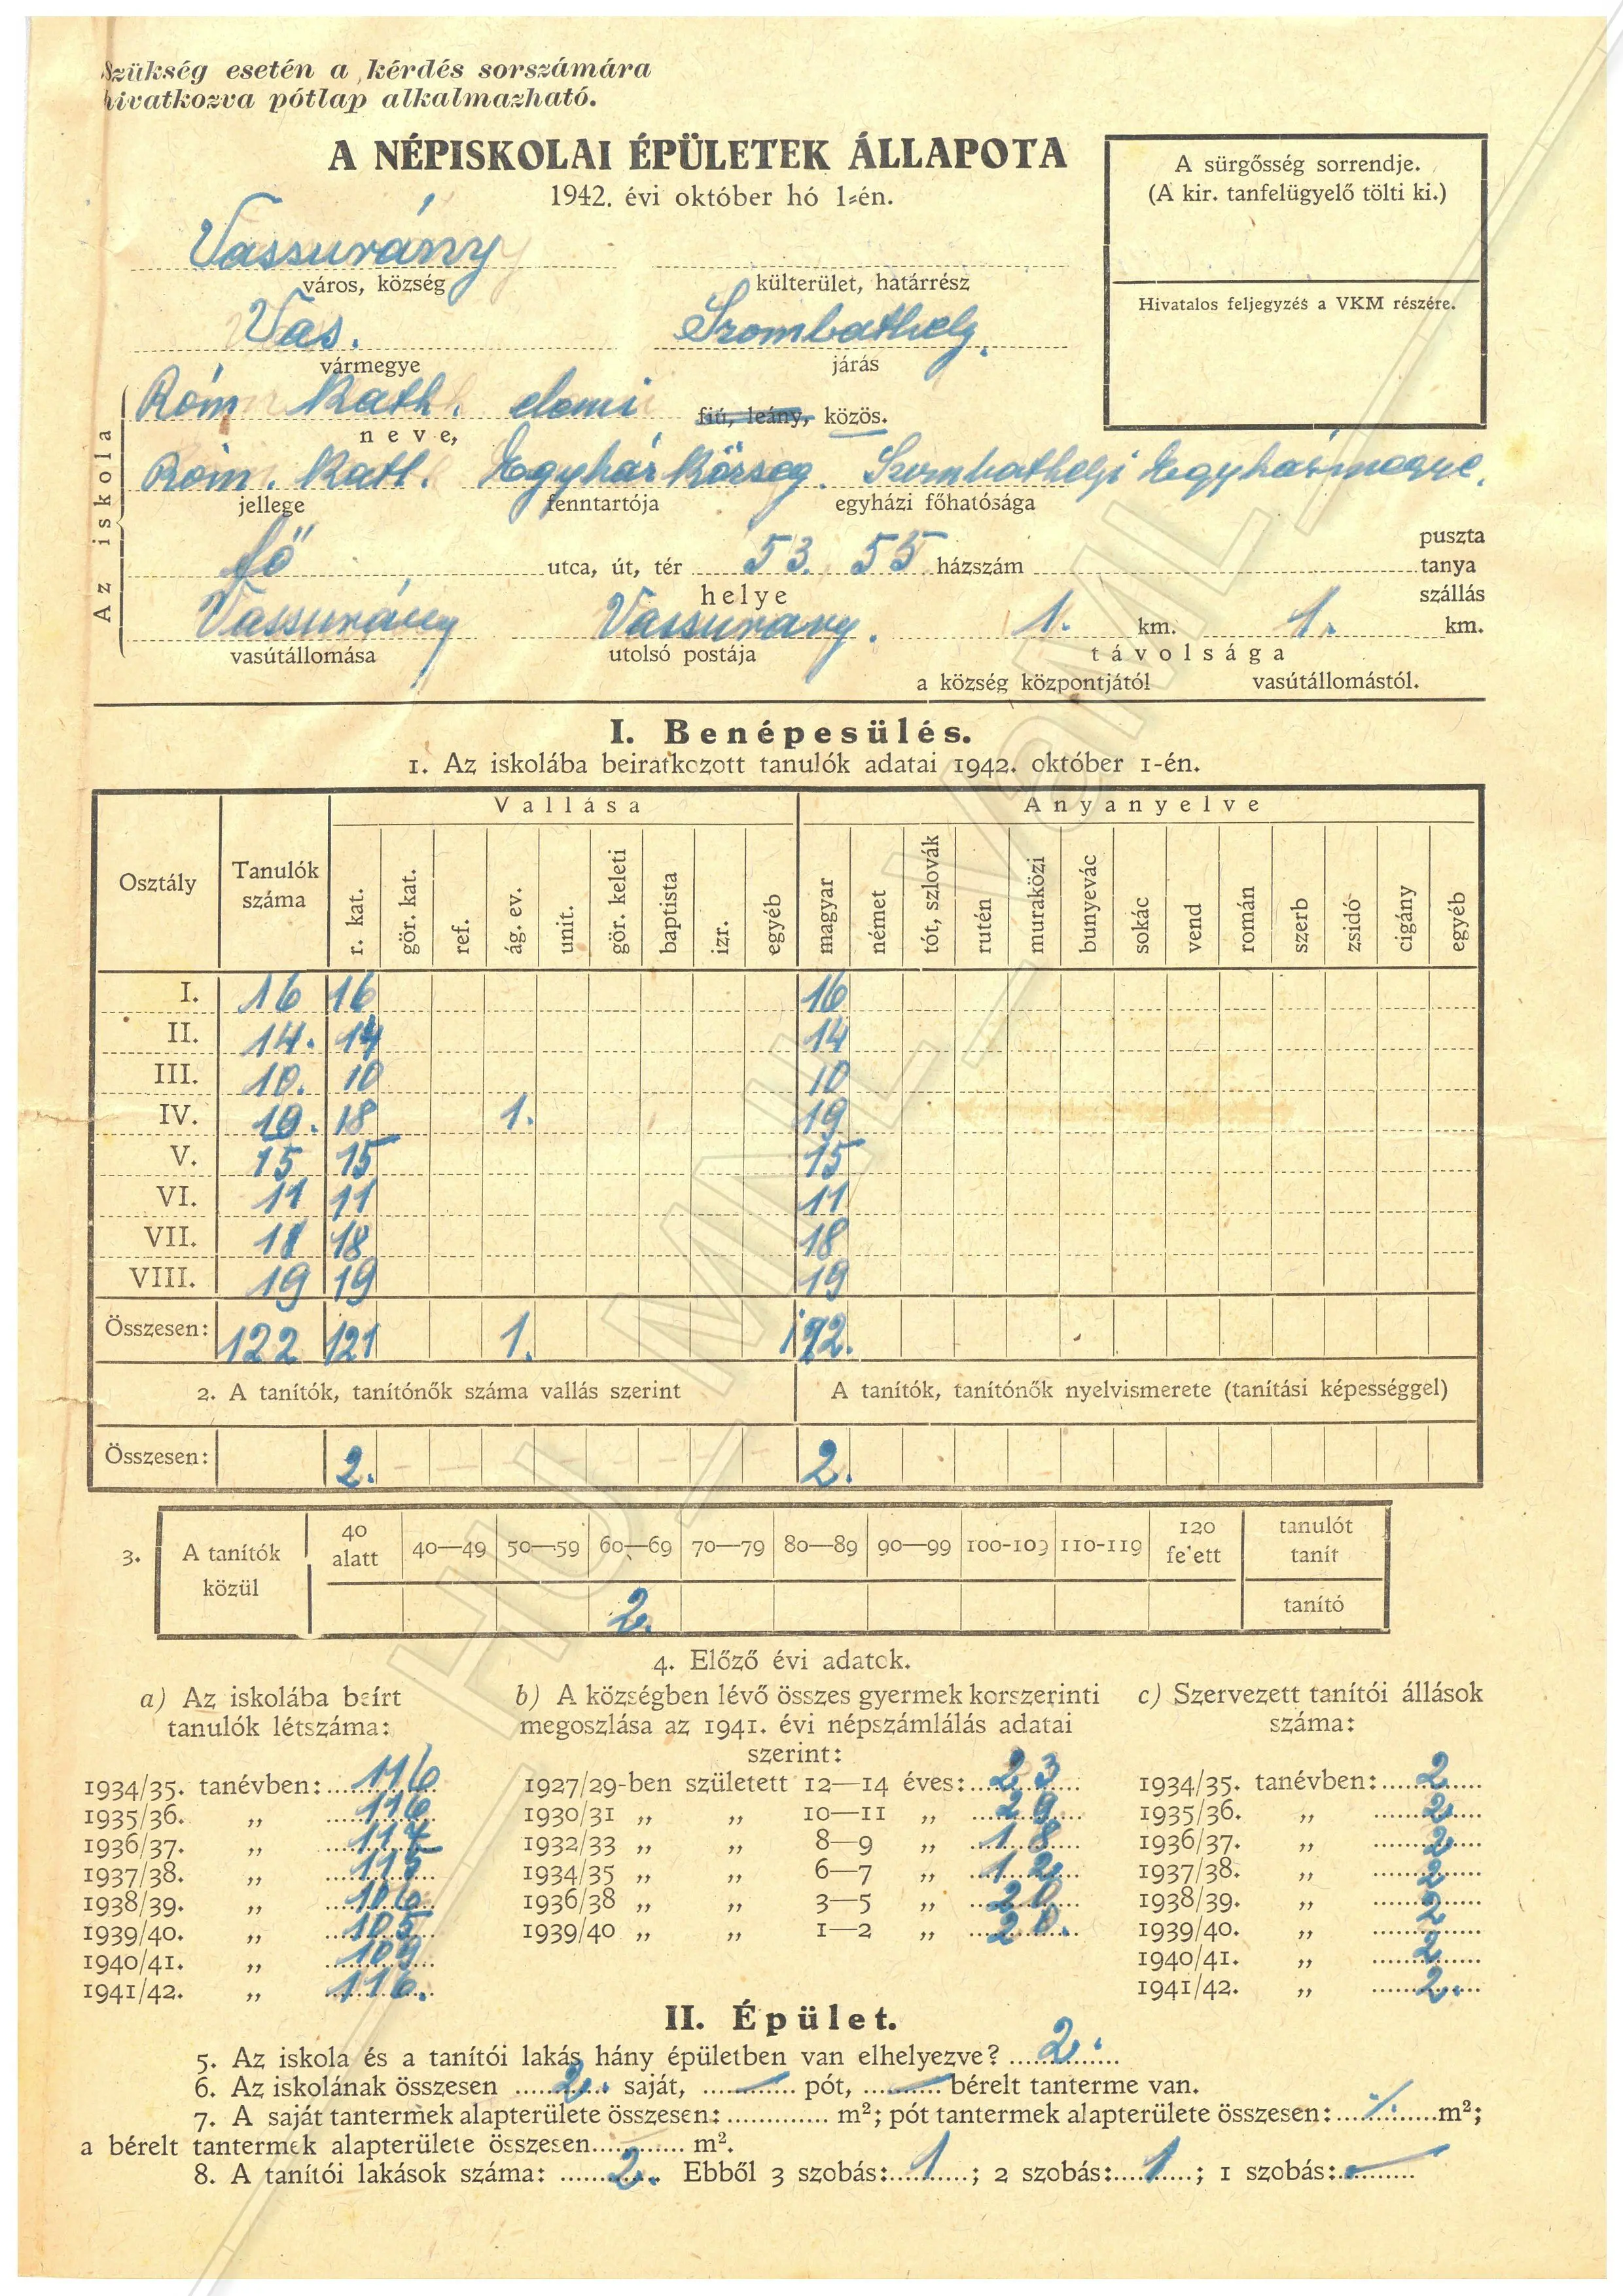 Szükség esetén a kérdés sorszámára
hivatkozva pótlap alkalmazható.
A NÉPISKOLAI ÉPÜLETEK ÁLLAPOTA
1942. évi október hó 1-én.
A sürgősség sorrendje.
(A kir. tanfelügyelő tölti ki.)
Hivatalos feljegyzés a VKM részére.
Vassurány
város, község
külterület, határrész
Vas.
vármegye
Szombathely.
járás
Az iskola
Róm Kath. elemi fiú, leány, közös.
neve,
Róm. Kath. Egyház Község. Szombathelyi Egyházmegye.
jellege fenntartója egyházi főhatósága
Fő utca, út, tér 53. 55 házszám
puszta
tanya
szállás
helye
Vassurány Vassurany. 1. km. 1. km.
vasútállomása utolsó postája távolsága
a község központjától vasútállomástól.
I. Benépesülés.
1. Az iskolába beiratkozott tanulók adatai 1942. október 1-én.
Osztály Tanulók száma Vallása Anyanyelve
r. kat. gör. kat. ref. ág. ev. unit. gör. keleti baptista izr. egyéb magyar német tót, szlovák rutén muraközi bunyevác sokác vend román szerb zsidó cigány egyéb
I. 16 16 16
II. 14. 14 14
III. 10. 10 10
IV. 19. 18 1. 19
V. 15 15 15
VI. 11 11 11
VII. 18 18 18
VIII. 19 19 19
Összesen: 122 121 1. 122.
2. A tanítók, tanítónők száma vallás szerint A tanítók, tanítónők nyelvismerete (tanítási képességgel)
Összesen: 2. 2.
3. A tanítók közül 40 alatt 40—49 50—59 60—69 70—79 80—89 90—99 100-109 110-119 120 felett tanulót tanít
2. tanító
4. Előző évi adatok.
a) Az iskolába beírt
tanulók létszáma:
1934/35. tanévben: 116
1935/36. „ 116
1936/37. „ 117
1937/38. „ 115
1938/39. „ 106
1939/40. „ 105
1940/41. „ 109
1941/42. „ 116.
b) A községben lévő összes gyermek korszerinti
megoszlása az 1941. évi népszámlálás adatai
szerint:
1927/29-ben született 12—14 éves: 23
1930/31 „ „ 10—11 „ 29
1932/33 „ „ 8—9 „ 18
1934/35 „ „ 6—7 „ 12
1936/38 „ „ 3—5 „
1939/40 „ „ 1—2 „
c) Szervezett tanítói állások
száma:
1934/35. tanévben: 2
1935/36. „ 2
1936/37. „ 2
1937/38. „ 2
1938/39. „ 2
1939/40. „ 2
1940/41. „ 2
1941/42. „ 2.
II. Épület.
5. Az iskola és a tanítói lakás hány épületben van elhelyezve? 2.
6. Az iskolának összesen 2. saját, — pót, — bérelt tanterme van.
7. A saját tantermek alapterülete összesen: m²; pót tantermek alapterülete összesen: ./. m²;
a bérelt tantermek alapterülete összesen m².
8. A tanítói lakások száma: 2. Ebből 3 szobás: 1; 2 szobás: 1; 1 szobás: —
HU_MNL_VaML